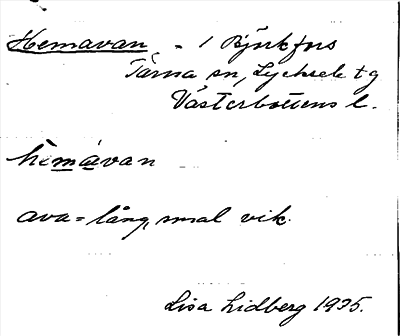 Hemavan - 1 Björkfors
Tärna sn, Lycksele tg
Västerbottens l.
hèmávan
ava = lång, smal vik.
Lisa Lidberg 1935.